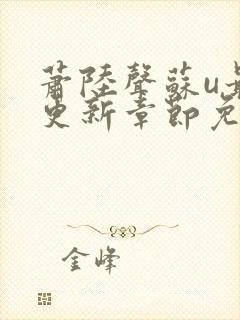 蕭陸聲蘇u最
更新章節免
金峰